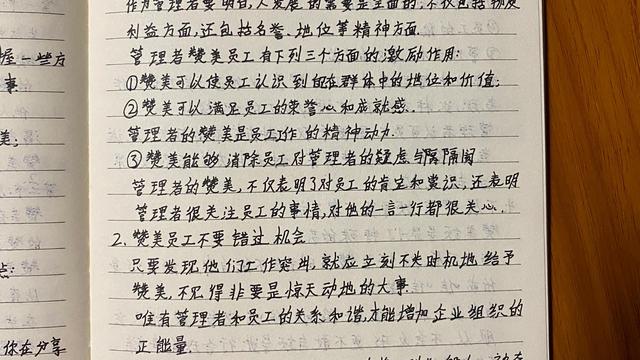 握一些方
事
美;
点:
你在分享
作为管理者要明白,人发展的需要是全面的,不仅包括物质
利益方面,还包括名誉、地位等精神方面.
管理者赞美员工有下列三个方面的激励作用:
①赞美可以使员工认识到自在群体中的地位和价值;
②赞美可以满足员工的荣誉心和成就感.
管理者的赞美是员工工作的精神动力.
③赞美能够消除员工对管理者的疑虑与隔阂
管理者的赞美,不仅表明了对员工的肯定和赏识,还表明
管理者很关注员工的事情,对他的一言一行都很关心.
2.赞美员工不要错过机会
只要发现他们工作突出,就应立刻不失时机地给予
赞美,不见得非要是惊天动地的大事.
唯有管理者和员工的关系和谐,才能增加企业组织的
正能量.